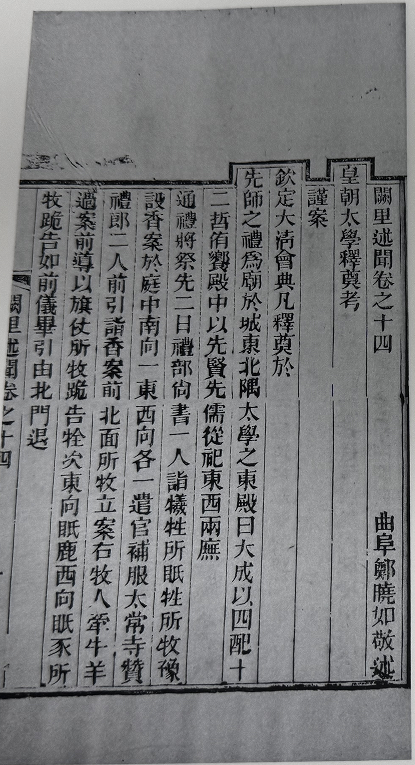 闕里述聞卷之十四　曲阜鄭曉如敬述
皇朝太學釋奠考
謹案
欽定大清會典凡釋奠於
先師之禮爲廟於城東北隅太學之東殿曰大成以四配十
二哲侑饗殿中以先賢先儒從祀東西兩廡
通禮將祭先二日禮部尙書一人詣犧牲所眂牲所牧豫
設香案於庭中南向一東西向各一遣官補服太常寺贊
禮郎二人前引詣香案前北面所牧立案右牧人牽牛羊
過案前導以旗仗所牧跪告牲次東向眂鹿西向眂豕所
牧跪告如前儀畢引由北門退
闕里述聞卷之十四